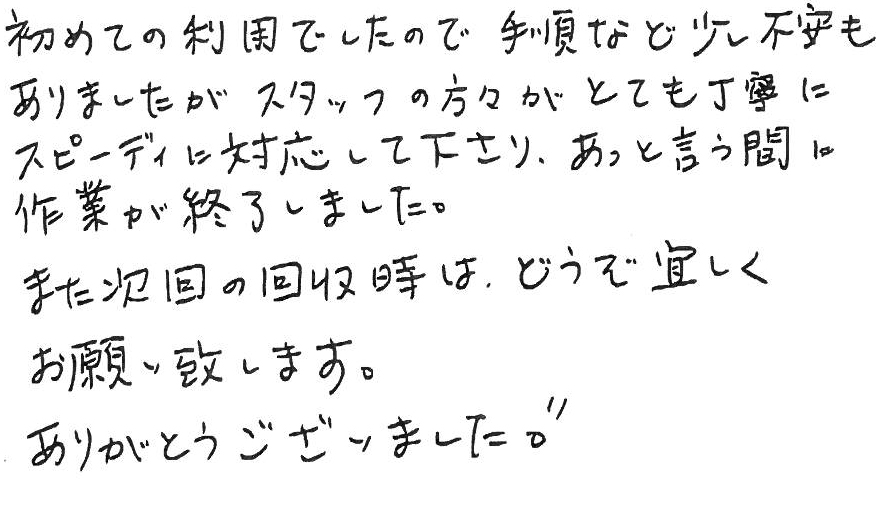 初めての利用でしたので手順など少し不安も
ありましたがスタッフの方々がとても丁寧に
スピーディに対応して下さり、あっと言う間に
作業が終了しました。
また次回の回収時は、どうぞ宜しく
お願い致します。
ありがとうございました。〃